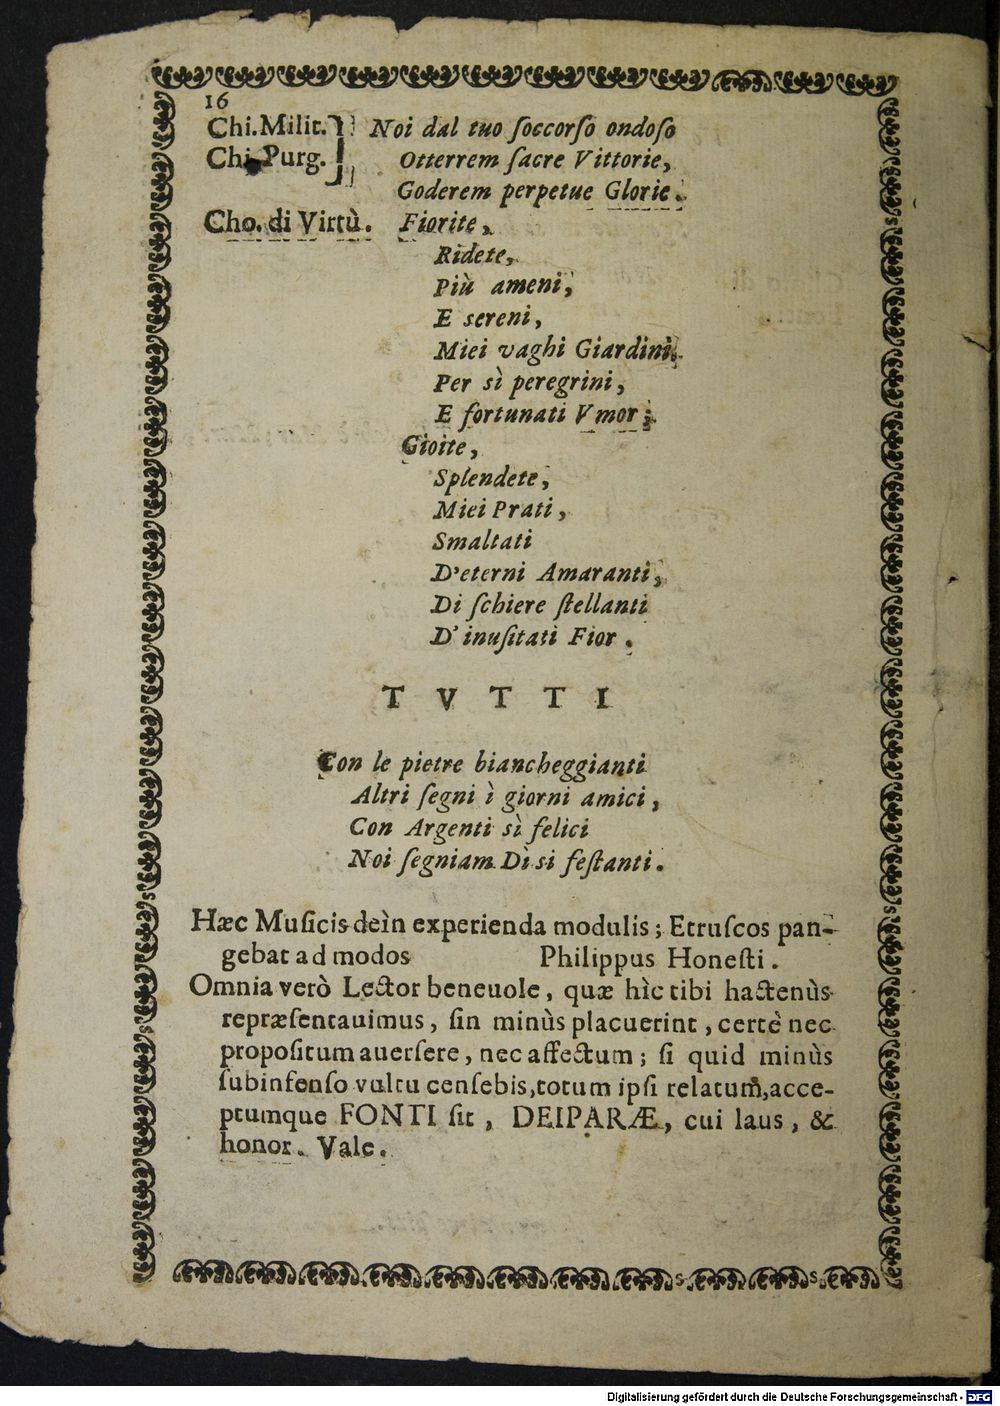 16
Chi.Milit. Noi dal tuo ſoccorſo ondoſo
Chi.Purg. Otterrem ſacre Vittorie,
Goderem perpetue Glorie.
Cho. di Virtù. Fiorite,
Ridete,
Più ameni,
E sereni,
Miei vaghi Giardini,
Per sì peregrini,
E fortunati Vmor;
Gioite,
Splendete,
Miei Prati,
Smaltati
D'eterni Amaranti,
Di ſchiere ſtellanti
D' inuſitati Fior.
TVTTI
Con le pietre biancheggianti
Altri ſegni ì giorni amici,
Con Argenti sì felici
Noi ſegniam Dì si feſtanti.
Hæc Muſicis deìn experienda modulis; Etruſcos pan-
gebat ad modos Philippus Honeſti.
Omnia verò Lector beneuole, quæ hìc tibi hactenùs
repræſentauimus, ſin minùs placuerint, certè nec
propoſitum auerſere, nec affectum; ſi quid minùs
ſubinfenſo vultu cenſebis, totum ipſi relatum, acce-
ptumque FONTI ſit, DEIPARÆ, cui laus, &
honor. Vale.
Digitalisierung gefördert durch die Deutsche Forschungsgemeinschaft - DFG